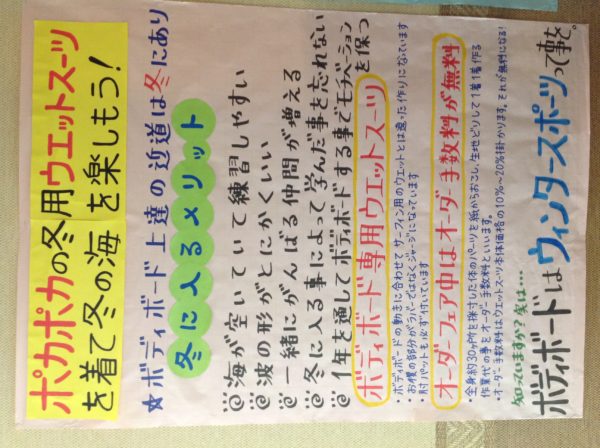 ポカポカの冬用ウエットスーツ
を着て冬の海を楽しもう!
★ボディボード上達の近道は冬にあり
冬に入るメリット
海が空いていて練習しやすい
波の形がとにかくいい
一緒にがんばる仲間が増える
冬に入る事によって学んだ事を忘れない
1年を通してボディボードする事でモチベーションを保つ
ボディボード専用ウエットスーツ
・ボディボードの動きに合わせてサーフィン用のウエットとは違った作りになっています
お腹の部分がラバーではなくジャージになっています
・肘パットも必ず付いています
オーダーフェア中はオーダー手数料が無料
・全身約30ヶ所を採寸した体のパーツを紙からおこし、生地どりして1着1着作る
作業代の事をオーダー手数料といいます。
・オーダー手数料はウエットスーツ本体価格の10%~20%掛かります。それが無料になる!
知っていますか?実は…
ボディボードはウィンタースポーツって事を。